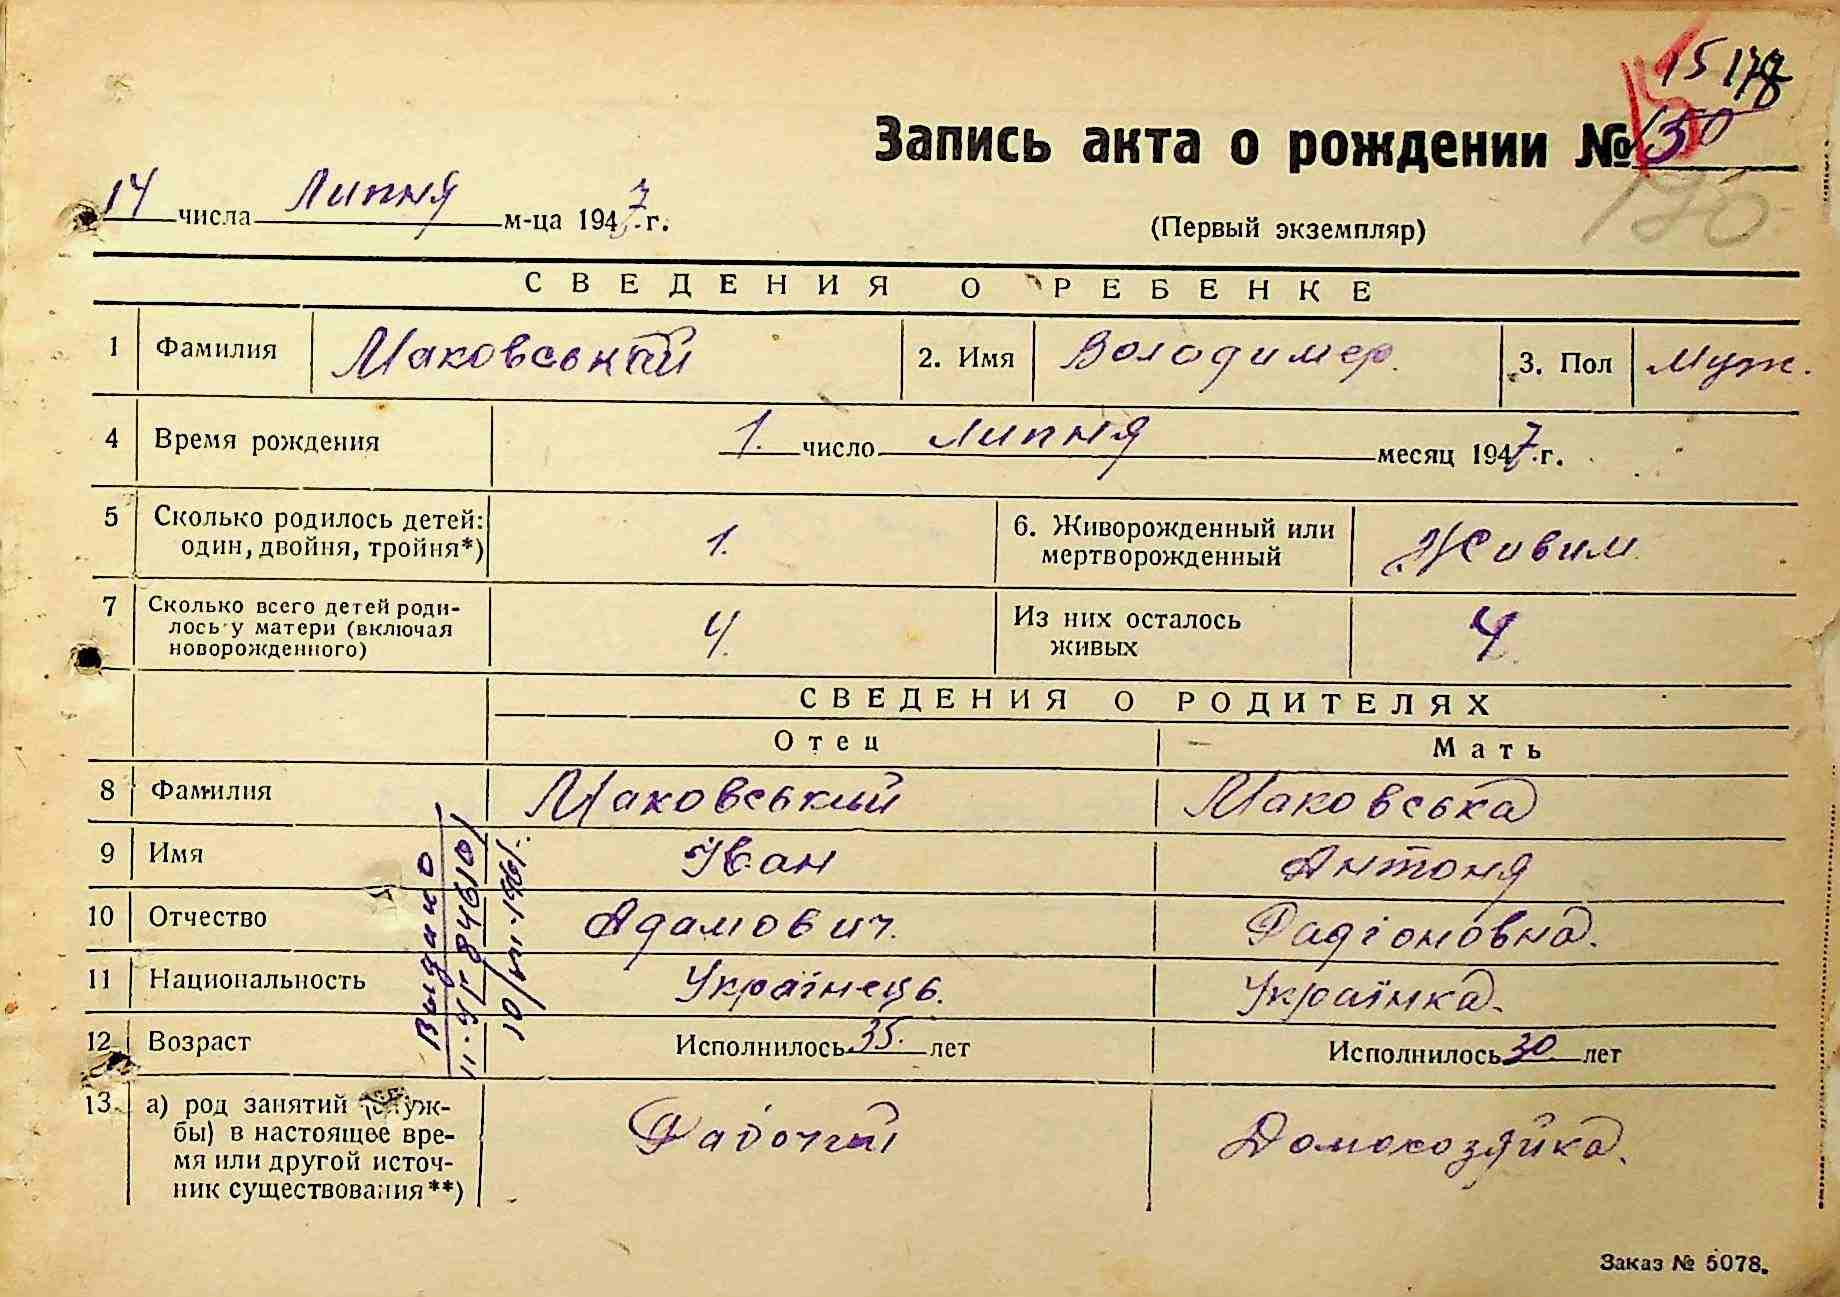 15 178
Запись акта о рождении № 150
176
14 числа Липня м-ца 1947 г.
(Первый экземпляр)
СВЕДЕНИЯ О РЕБЕНКЕ
1 Фамилия Маковський 2. Имя Володимер. 3. Пол Муж.
4 Время рождения 1. число Липня месяц 1947 г.
5 Сколько родилось детей: 1. 6. Живорожденный или Живим
один, двойня, тройня*) мертворожденный
7 Сколько всего детей роди- 4. Из них осталось 4.
лось у матери (включая живых
новорожденного)
СВЕДЕНИЯ О РОДИТЕЛЯХ
Отец Мать
8 Фамилия Маковський Маковська
9 Имя Іван Антоня
10 Отчество Адамович. Радіоновна.
11 Национальность Українець. Українка.
12 Возраст Исполнилось 35. лет Исполнилось 30 лет
Выдано
13. а) род занятий (служ- Рабочий Домохозяйка.
бы) в настоящее вре-
мя или другой источ-
ник существования**)
Заказ № 5078.